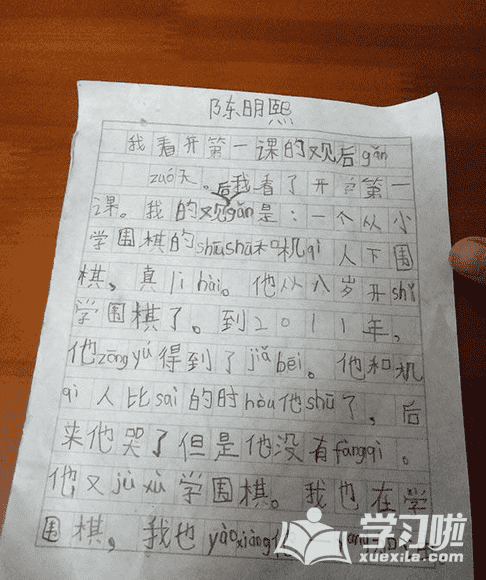 陈明熙
我看开第一课的观后gǎn
zuó天。我看了开学第一
课。我的观后gǎn是:一个从小
学围棋的shūshu和机qì人下围
棋,真lì hài。他从八岁开shǐ
学围棋了。到2011年,
他zōng yú得到了jiǎ bēi。他和机
qì人比sài的时hòu他shū了,后
来他哭了但是他没有fàngqì。
他又jù xù学围棋。我也在学
围棋,我也yào xiàng他
学习啦
www.xuexila.com